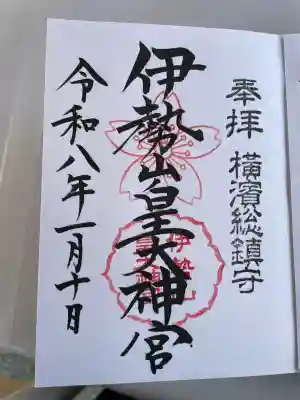 奉拝 横濱総鎮守
伊勢山皇大神宮
令和八年一月十日